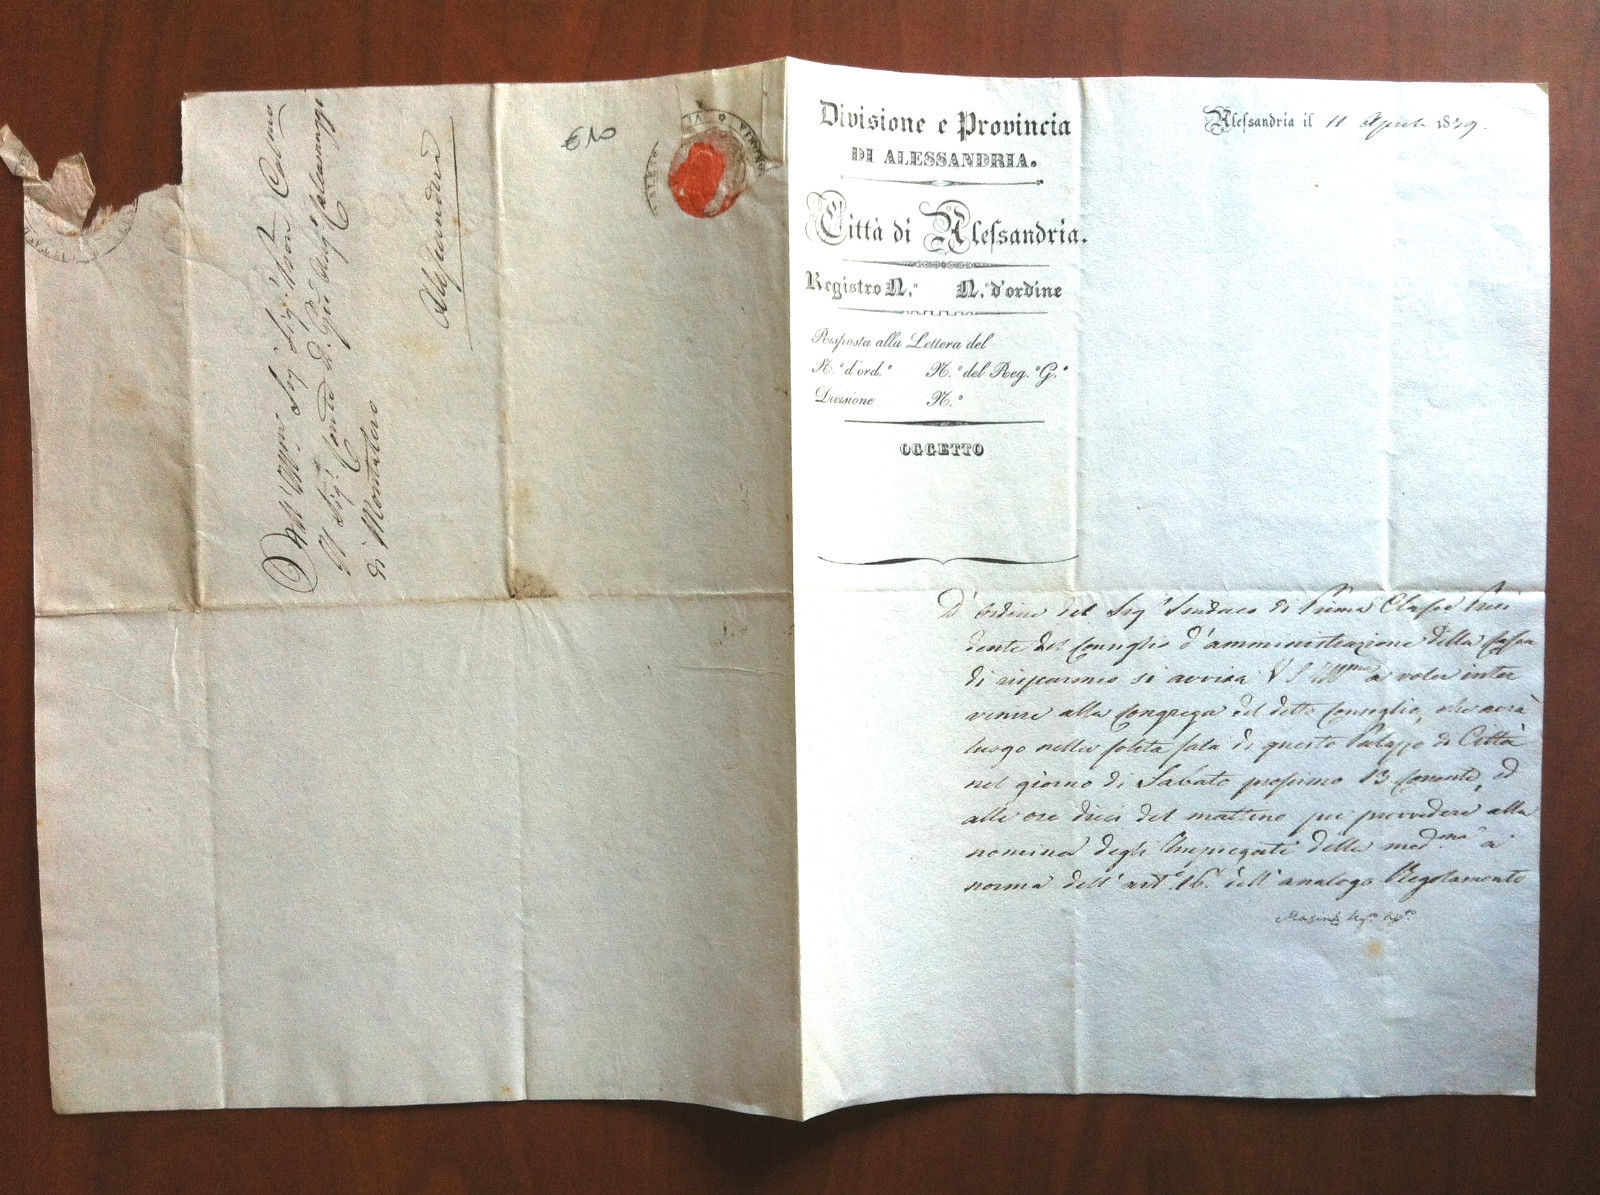 All' Ill.mo Sig. Sig. Pron Colmo
Il Sig. Conte D.
di Montalero
Alessandria
€10
Divisione e Provincia
DI ALESSANDRIA.
Città di Alessandria.
Registro N.° N.° d'ordine
Risposta alla Lettera del
N.° d'ord.° N.° del Reg.° G.°
Divisione N.°
OGGETTO
Alessandria il 11 Aprile 1839.
D'ordine del Sig.r Sindaco di Prima Classe Presi
dente del Consiglio d'amministrazione della Cassa
di risparmio si avvisa V S Ill.ma a voler inter
venire alla Congrega del detto Consiglio, che avrà
luogo nella solita sala di questo Palazzo di Città
nel giorno di Sabato prossimo 13 Corrente, ed
alle ore dieci del mattino per provvedere alla
nomina degli Impiegati della med.ma a
norma dell'art.° 16. dell'analogo Regolamento